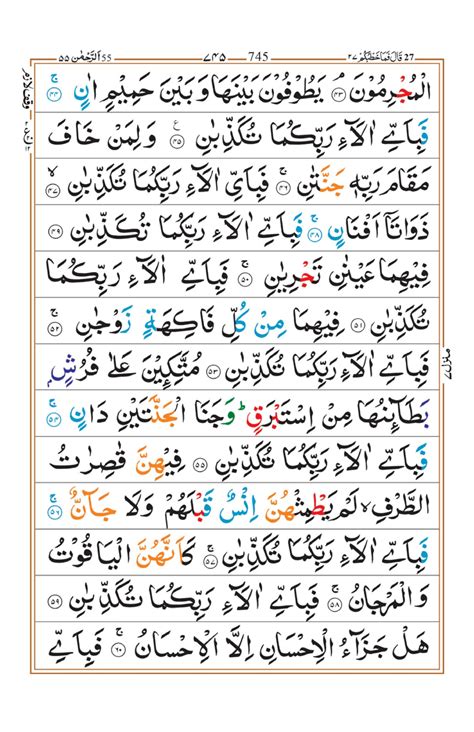 27 قَالَ فَمَا خَطْبُكُمْ ٢٧ 745 ٧٤٥ 55 اَلرَّحْمٰن ٥٥
الْمُجْرِمُوْنَ ۘ ﴿٤٣﴾ يَطُوْفُوْنَ بَيْنَهَا وَ بَيْنَ حَمِيْمٍ اٰنٍ ۚ ﴿٤٤﴾
فَبِاَيِّ اٰلَآءِ رَبِّكُمَا تُكَذِّبٰنِ ۧ ﴿٤٥﴾ وَ لِمَنْ خَافَ
مَقَامَ رَبِّهٖ جَنَّتٰنِ ۚ ﴿٤٦﴾ فَبِاَيِّ اٰلَآءِ رَبِّكُمَا تُكَذِّبٰنِ ۙ ﴿٤٧﴾
ذَوَاتَاۤ اَفْنَانٍ ۚ ﴿٤٨﴾ فَبِاَيِّ اٰلَآءِ رَبِّكُمَا تُكَذِّبٰنِ ﴿٤٩﴾
فِيْهِمَا عَيْنٰنِ تَجْرِيٰنِ ۚ ﴿٥٠﴾ فَبِاَيِّ اٰلَآءِ رَبِّكُمَا
تُكَذِّبٰنِ ﴿٥١﴾ فِيْهِمَا مِنْ كُلِّ فَاكِهَةٍ زَوْجٰنِ ۚ ﴿٥٢﴾
فَبِاَيِّ اٰلَآءِ رَبِّكُمَا تُكَذِّبٰنِ ﴿٥٣﴾ مُتَّكِـِٕيْنَ عَلٰى فُرُشٍۭ
بَطَآىِٕنُهَا مِنْ اِسْتَبْرَقٍ ؕ وَ جَنَا الْجَنَّتَيْنِ دَانٍ ۚ ﴿٥٤﴾
فَبِاَيِّ اٰلَآءِ رَبِّكُمَا تُكَذِّبٰنِ ﴿٥٥﴾ فِيْهِنَّ قٰصِرٰتُ
الطَّرْفِ ۙ لَمْ يَطْمِثْهُنَّ اِنْسٌ قَبْلَهُمْ وَ لَا جَآنٌّ ۚ ﴿٥٦﴾
فَبِاَيِّ اٰلَآءِ رَبِّكُمَا تُكَذِّبٰنِ ۚ ﴿٥٧﴾ كَاَنَّهُنَّ الْيَاقُوْتُ
وَ الْمَرْجَانُ ۚ ﴿٥٨﴾ فَبِاَيِّ اٰلَآءِ رَبِّكُمَا تُكَذِّبٰنِ ﴿٥٩﴾
هَلْ جَزَآءُ الْاِحْسَانِ اِلَّا الْاِحْسَانُ ۚ ﴿٦٠﴾ فَبِاَيِّ
وقف لازم
منزل ٧